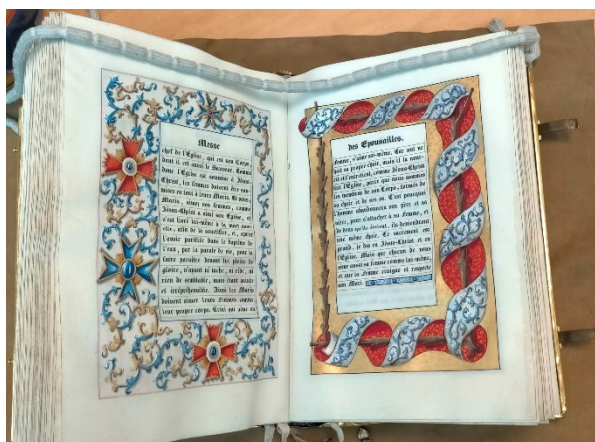 Messe
chef de l'Eglise, qui est son Corps,
dont il est aussi le Sauveur. Comme
donc l'Eglise est soumise à Jésus-
Christ, les femmes doivent être sou-
mises en tout à leurs Maris. Et vous,
Maris, aimez vos femmes, comme
Jésus-Christ a aimé son Eglise, et
s'est livré lui-même à la mort pour
elle, afin de la sanctifier, et, après
l'avoir purifiée dans le baptême de
l'eau, par la parole de vie, pour la
faire paraître devant lui pleine de
gloire, n'ayant ni tache, ni ride, ni
rien de semblable, mais étant sainte
et irrépréhensible. Ainsi les Maris
doivent aimer leurs Femmes comme
leur propre corps. Celui qui aime sa
des Epousailles.
femme, s'aime soi-même. Car nul ne
hait sa propre chair, mais il la nour-
rit et l'entretient, comme Jésus-Christ
fait l'Eglise, parce que nous sommes
les membres de son Corps, formés de
sa chair et de ses os. C'est pourquoi
l'homme abandonnera son père et sa
mère, pour s'attacher à sa Femme, et
de deux qu'ils étaient, ils deviendront
une même chair. Ce sacrement est
grand, je dis en Jésus-Christ et en
l'Eglise. Mais que chacun de vous
aime aussi sa femme comme lui-même,
et que la Femme craigne et respecte
son Mari.